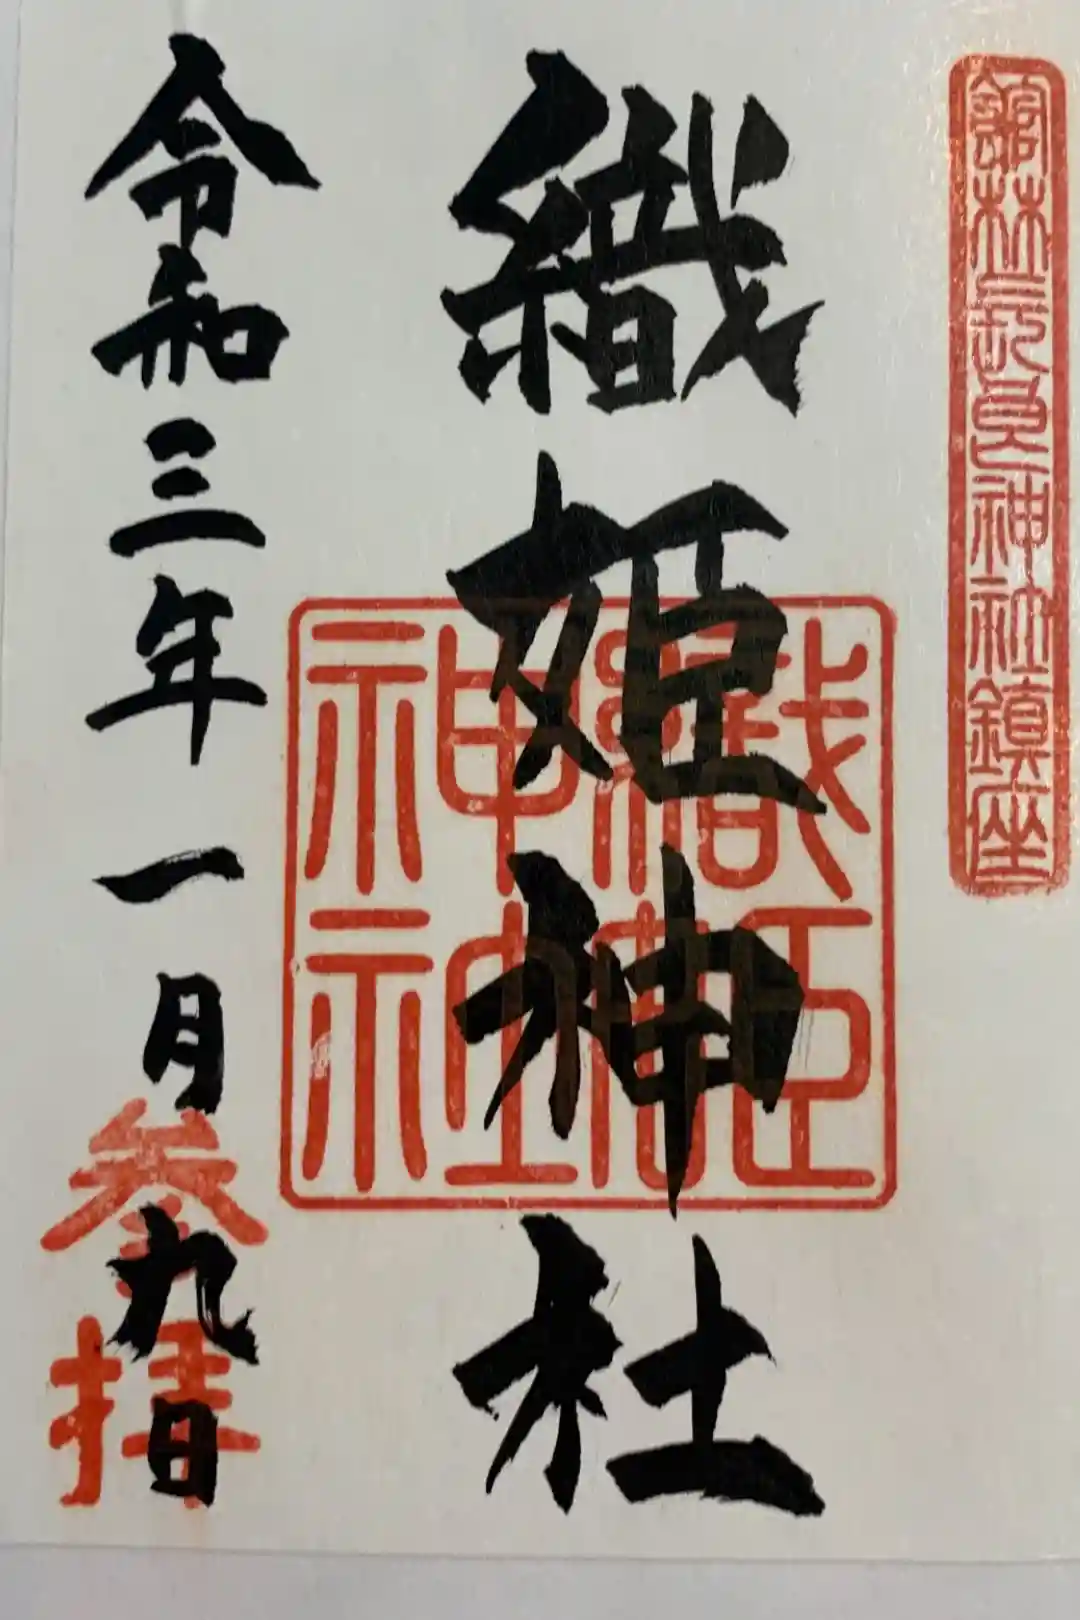 舘林長良神社鎮座
織姫神社
織姫神社
令和三年一月九日
参拝